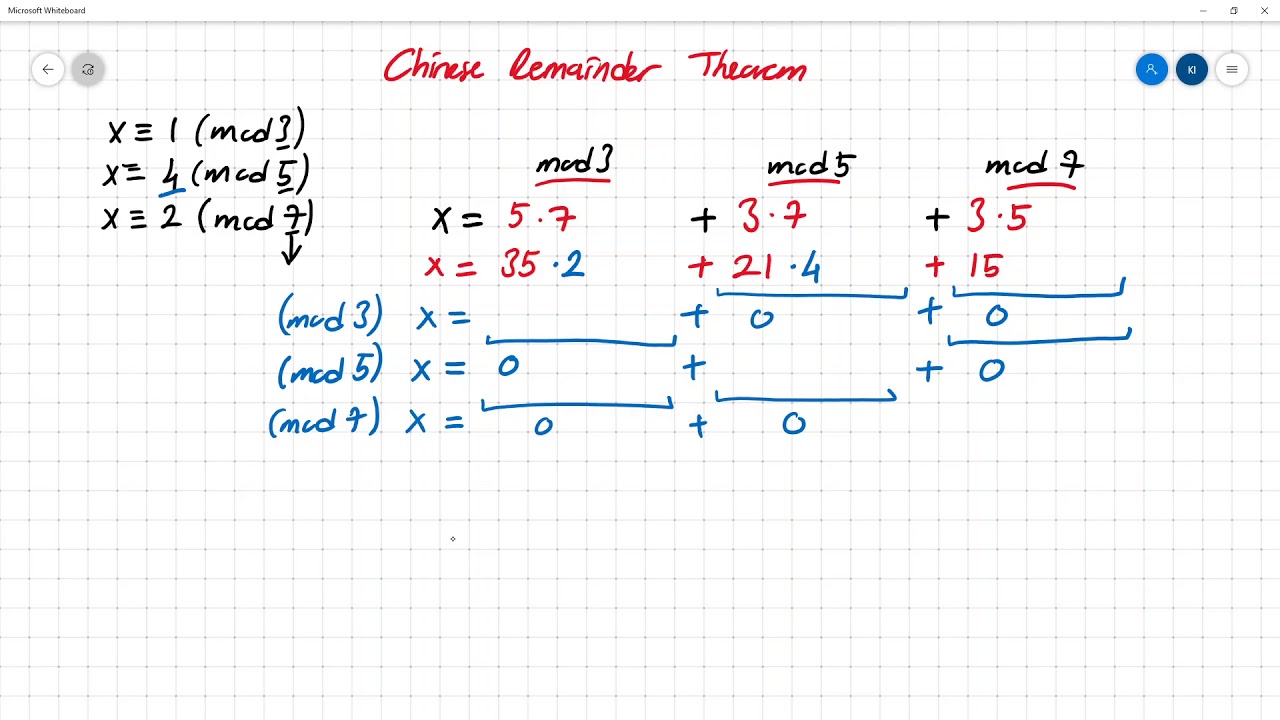 Microsoft Whiteboard
Chinese Remainder Theorem
KI
x ≡ 1 (mod 3)
x ≡ 4 (mod 5)
x ≡ 2 (mod 7)
mod 3 mod 5 mod 7
x = 5·7 + 3·7 + 3·5
x = 35·2 + 21·4 + 15
(mod 3) x = + 0 + 0
(mod 5) x = 0 + + 0
(mod 7) x = 0 + 0